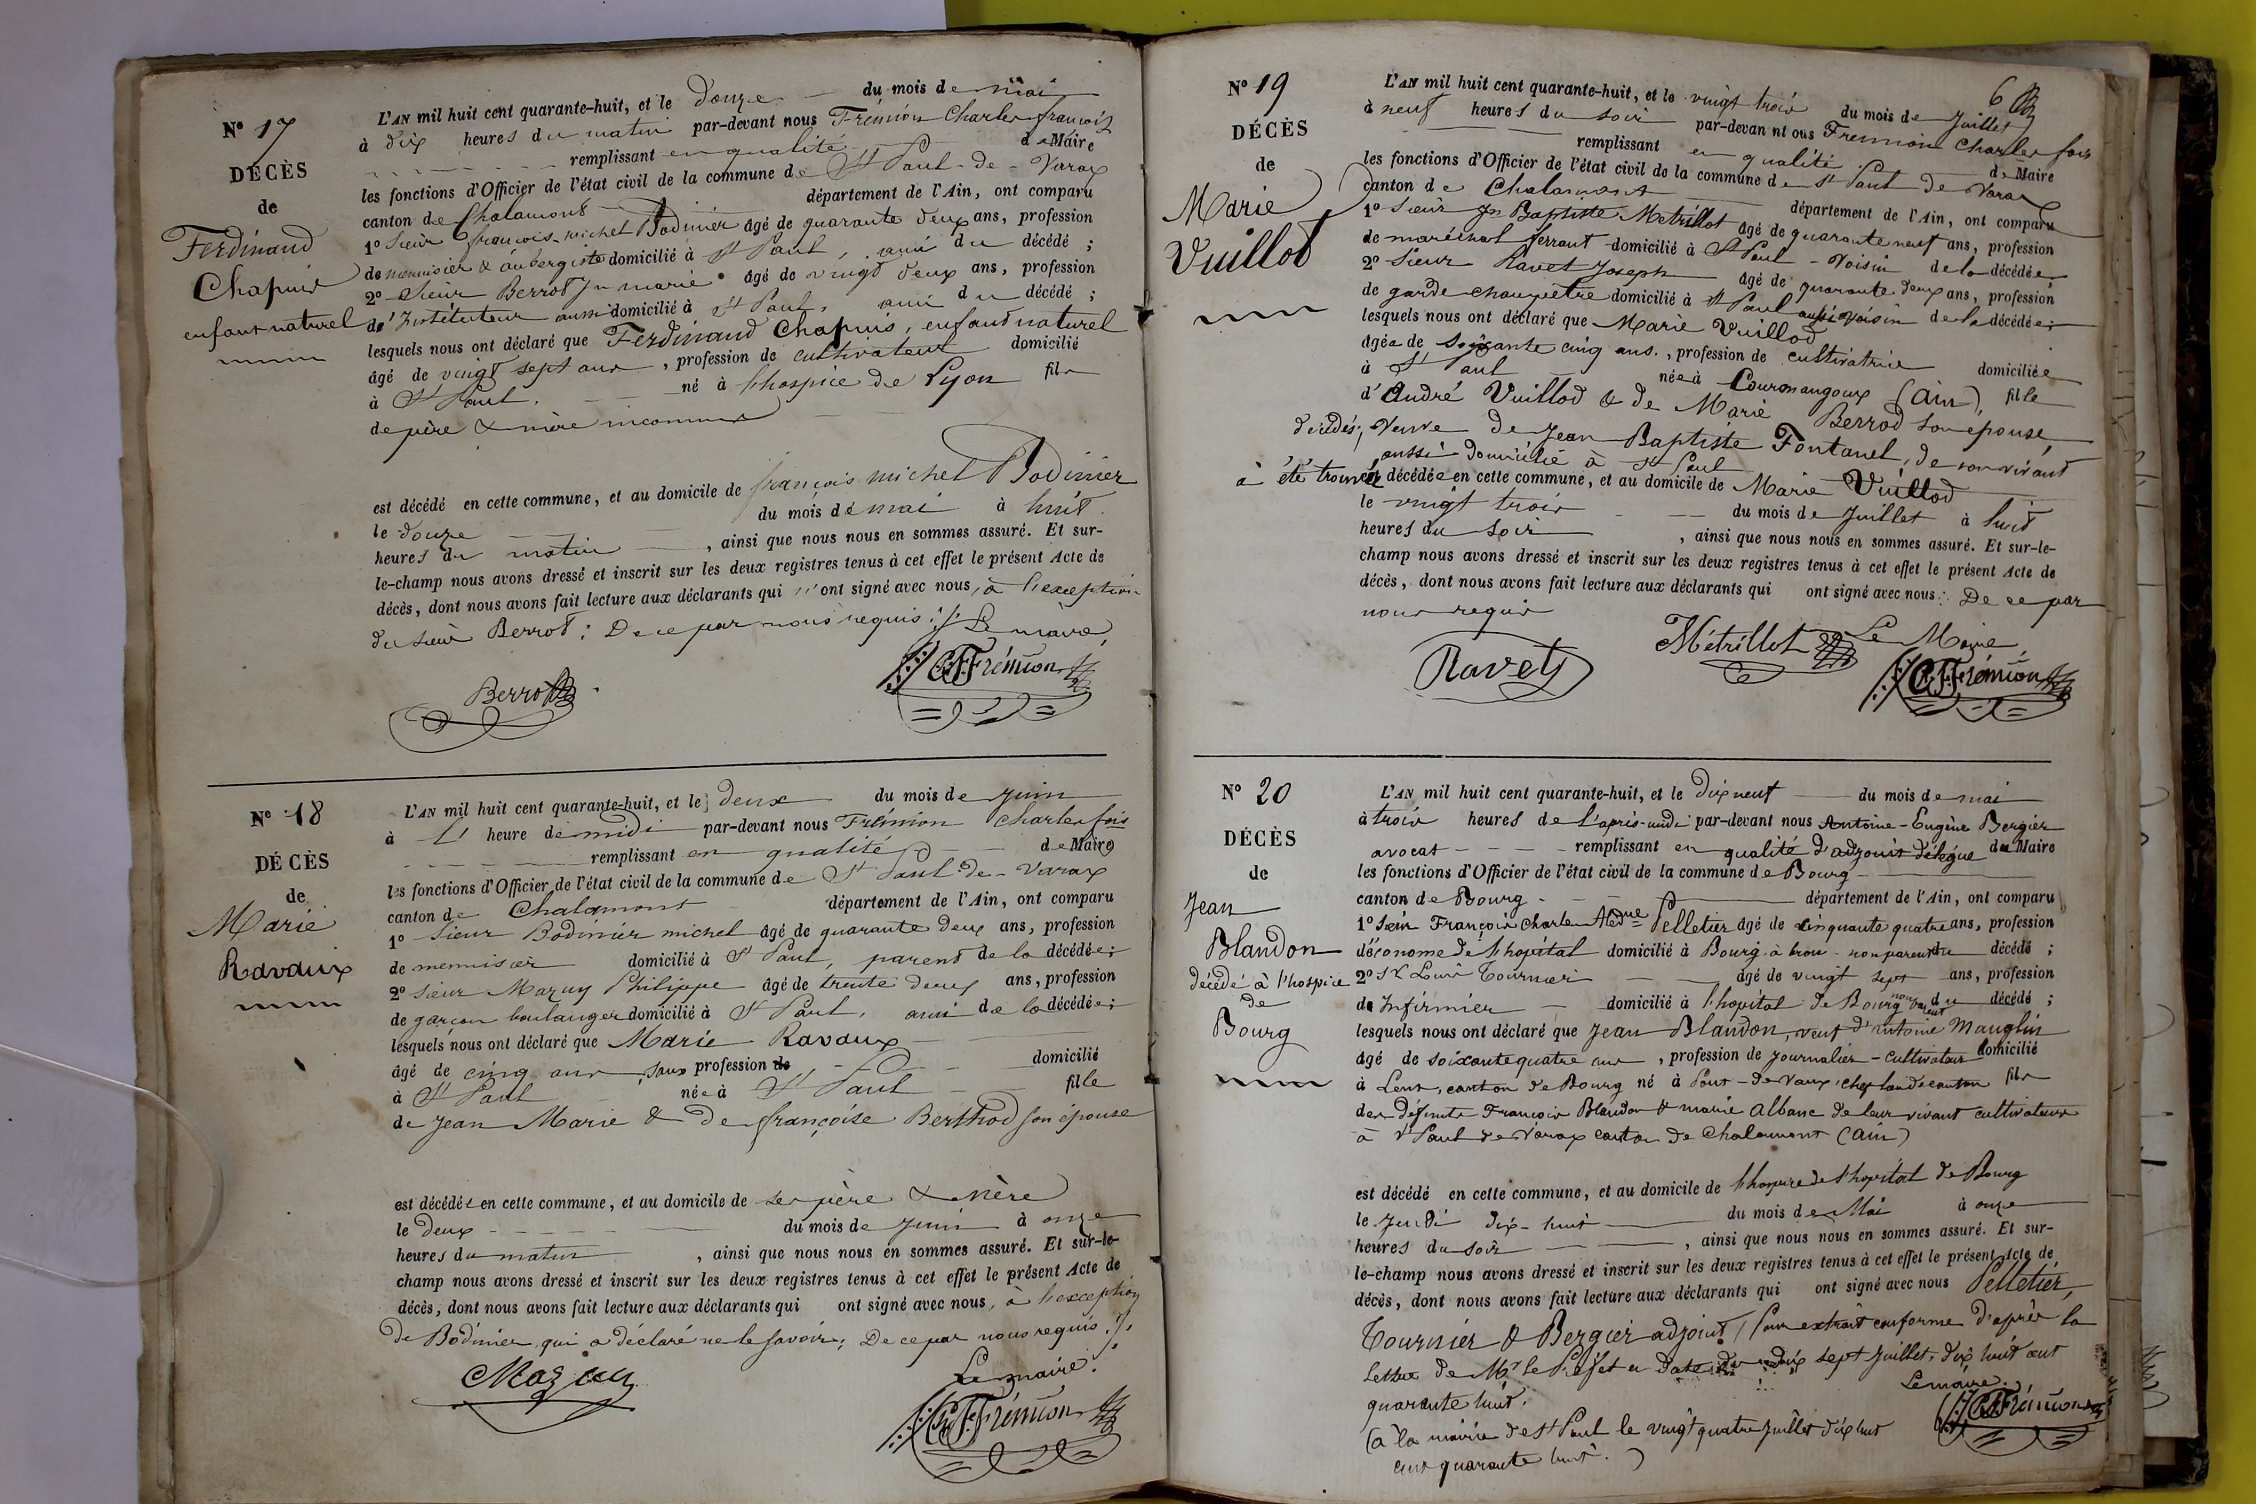 N° 17
DÉCÈS
de
Ferdinand
Chapuis
enfant naturel
L'AN mil huit cent quarante-huit, et le douze du mois de mai
à dix heures du matin par-devant nous Frémion Charles françois
remplissant en qualité de Maire
les fonctions d'Officier de l'état civil de la commune de St Paul-de-Varax
canton de Chalamont département de l'Ain, ont comparu
1° Sieur françois-michel Bodinier âgé de quarante deux ans, profession
de menuisier & aubergiste domicilié à St Paul, ami du décédé ;
2° Sieur Berrod Jn marie âgé de vingt deux ans, profession
d'Instituteur aussi domicilié à St Paul, ami du décédé ;
lesquels nous ont déclaré que Ferdinand Chapuis, enfant naturel
âgé de vingt sept ans, profession de cultivateur domicilié
à St Paul, né à l'hospice de Lyon fils
de père & mère inconnus
est décédé en cette commune, et au domicile de françois michel Bodinier
le douze du mois de mai à huit
heures du matin, ainsi que nous nous en sommes assuré. Et sur-
le-champ nous avons dressé et inscrit sur les deux registres tenus à cet effet le présent Acte de
décès, dont nous avons fait lecture aux déclarants qui n'ont signé avec nous, à l'exception
du sieur Berrod ; De ce par nous requis ; Le maire,
Berrod
CF Frémion
N° 18
DÉCÈS
de
Marie
Ravaux
L'AN mil huit cent quarante-huit, et le deux du mois de juin
à L' heure de midi par-devant nous Frémion Charles fois
remplissant en qualité de Maire
les fonctions d'Officier de l'état civil de la commune de St Paul-de-Varax
canton de Chalamont département de l'Ain, ont comparu
1° Sieur Bodinier michel âgé de quarante deux ans, profession
de menuisier domicilié à St Paul, parent de la décédée ;
2° Sieur Mazuy Philippe âgé de trente deux ans, profession
de garçon boulanger domicilié à St Paul, ami de la décédée ;
lesquels nous ont déclaré que Marie Ravaux
âgé de cinq ans, sans profession de domicilié
à St Paul née à St Paul fille
de Jean Marie & de françoise Berthod son épouse
est décédée en cette commune, et au domicile de ses père & mère
le deux du mois de juin à onze
heures du matin, ainsi que nous nous en sommes assuré. Et sur-le-
champ nous avons dressé et inscrit sur les deux registres tenus à cet effet le présent Acte de
décès, dont nous avons fait lecture aux déclarants qui ont signé avec nous, à l'exception
de Bodinier, qui a déclaré ne le savoir ; De ce par nous requis.
Le maire.
Mazuy
CF Frémion
6
N° 19
DÉCÈS
de
Marie
Vuillod
L'AN mil huit cent quarante-huit, et le vingt trois du mois de Juillet
à neuf heures du soir par-devant nous Fremion Charles fois
remplissant en qualité de Maire
les fonctions d'Officier de l'état civil de la commune de St Paul de Varax
canton de Chalamont département de l'Ain, ont comparu
1° Sieur Jn Baptiste Metrillot âgé de quarante neuf ans, profession
de maréchal ferrant domicilié à St Paul - Voisin de la décédée
2° Sieur Ravet Joseph âgé de quarante deux ans, profession
de garde champêtre domicilié à St Paul aussi voisin de la décédée ;
lesquels nous ont déclaré que Marie Vuillod
âgée de soixante cinq ans, profession de cultivatrice domiciliée
à St Paul née à Courmangoux (Ain), fille
d'André Vuillod & de Marie Berrod son épouse,
décédés ; Veuve de Jean Baptiste Fontanel, de son vivant
aussi domicilié à St Paul
à été trouvée décédée en cette commune, et au domicile de Marie Vuillod
le vingt trois du mois de Juillet à huit
heures du soir, ainsi que nous nous en sommes assuré. Et sur-le-
champ nous avons dressé et inscrit sur les deux registres tenus à cet effet le présent Acte de
décès, dont nous avons fait lecture aux déclarants qui ont signé avec nous : De ce par
nous requis
Ravet
Métrillot
Le Maire,
CF Frémion
N° 20
DÉCÈS
de
Jean
Blandon
décédé à l'hospice
de
Bourg
L'AN mil huit cent quarante-huit, et le dix neuf du mois de mai
à trois heures de l'après-midi par-devant nous Antoine-Eugène Bergier
avocat remplissant en qualité d'adjoint délégué du Maire
les fonctions d'Officier de l'état civil de la commune de Bourg
canton de Bourg département de l'Ain, ont comparu
1° Sieur François Charle Alexdre Pelletier âgé de cinquante quatre ans, profession
d'économe de l'hopital domicilié à Bourg à brou non parent du décédé ;
2° Sr Louis Tournier âgé de vingt sept ans, profession
de Infirmier domicilié à l'hopital de Bourg non parent du décédé ;
lesquels nous ont déclaré que Jean Blandon, veuf d'antoine Mauglin
âgé de soixante quatre ans, profession de Journalier-cultivateur domicilié
à Lent, canton de Bourg né à Pont-de-Vaux, chef lieu de canton fils
des défunts François Blandon & marie Albanc de leur vivant cultivateurs
à St Paul de Varax canton de Chalamont (Ain)
est décédé en cette commune, et au domicile de l'hospice de l'hopital de Bourg
le Jeudi dix-huit du mois de Mai à onze
heures du soir, ainsi que nous nous en sommes assuré. Et sur-
le-champ nous avons dressé et inscrit sur les deux registres tenus à cet effet le présent Acte de
décès, dont nous avons fait lecture aux déclarants qui ont signé avec nous Pelletier,
Tournier & Bergier adjoint / Pour extrait conforme d'après la
lettre de Mr le Préfet en date du dix sept juillet, dix huit cent
quarante huit.
Le maire,
CF Frémion
(à la mairie de St Paul le vingt quatre juillet dix huit
cent quarante huit.)